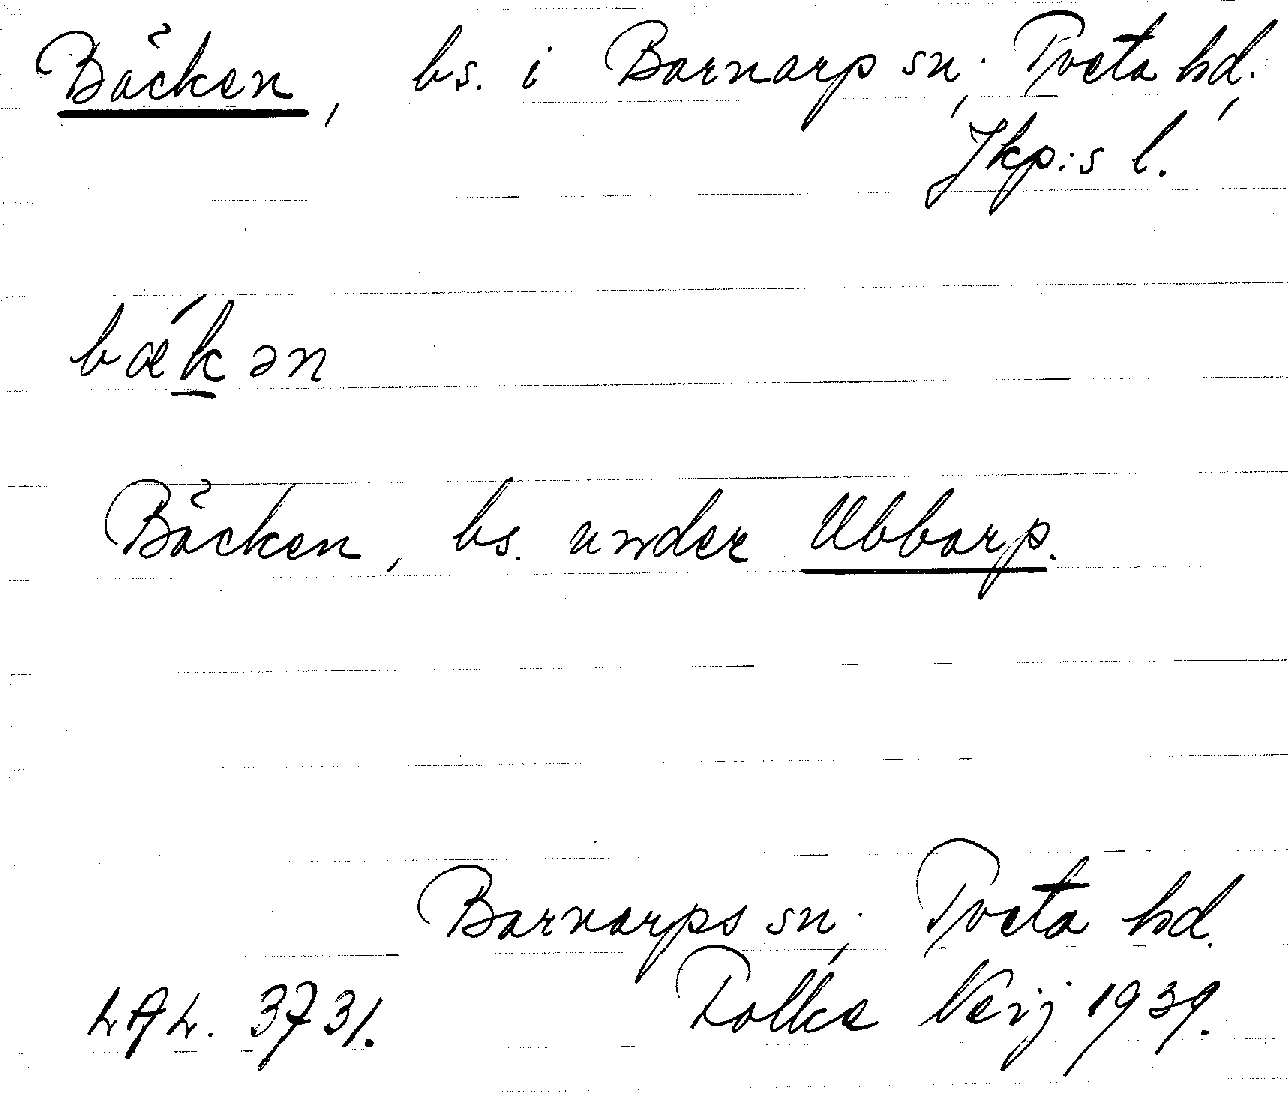 Bäcken, bs. i Barnarp sn, Tveta hd,
Jkp:s l.
bǽk̲ən
Bäcken, bs. under Ubbarp.
Barnarps sn, Tveta hd.
LAL. 3731. Folke Neij 1939.